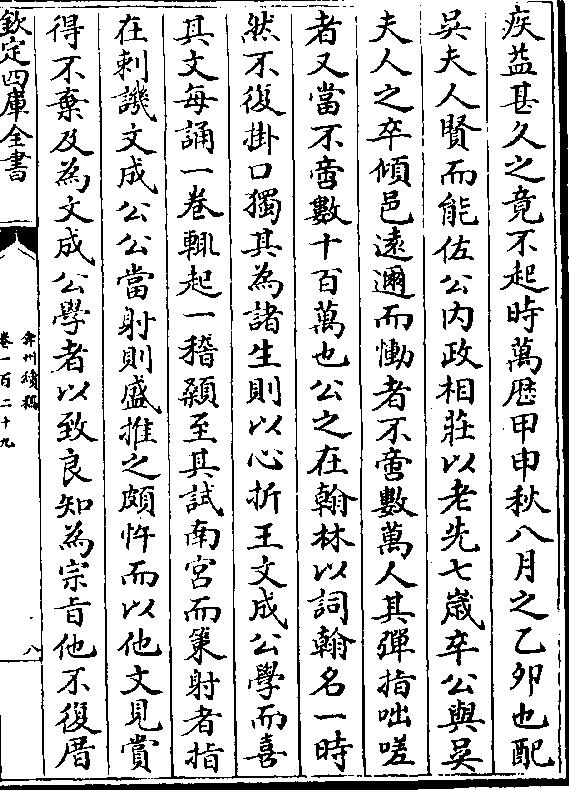 疾益甚久之竟不起時萬歴甲申秋八月之乙卯也配
吳夫人賢而能佐公内政相莊以老先七歳卒公與吳
夫人之卒傾邑逺邇而慟者不啻數萬人其彈指咄嗟
者又當不啻數十百萬也公之在翰林以詞翰名一時
然不復掛口獨其為諸生則以心折王文成公學而喜
其文每誦一卷輒起一稽顙至其試南宫而策射者指
在刺譏文成公公當射則盛推之頗忤而以他文見賞
得不棄及為文成公學者以致良知為宗㫖他不復厝
欽定四庫全書
弇州續稿
卷一百二十九
八